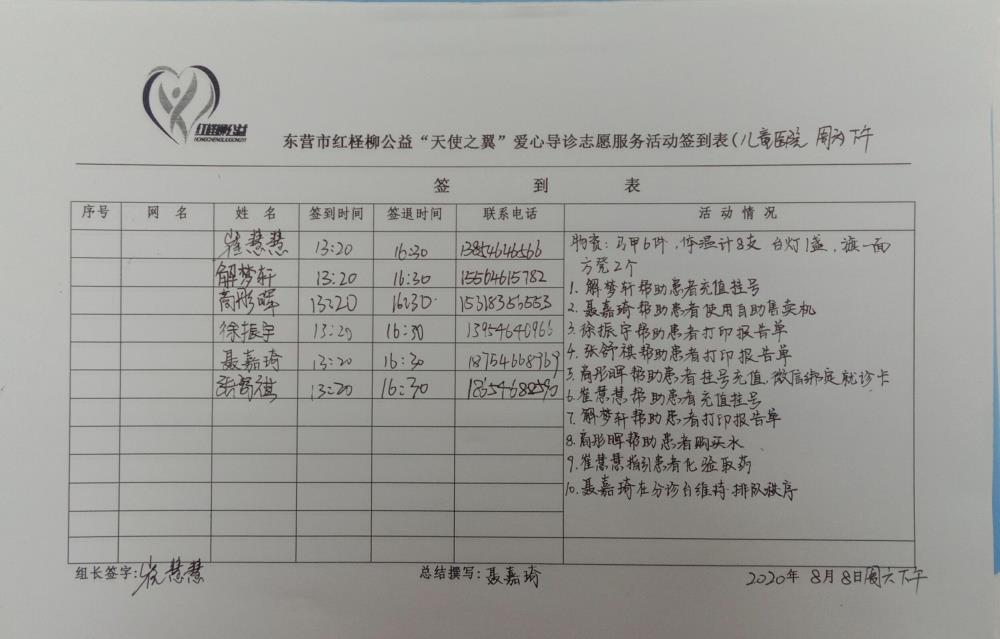 红柽柳公益
HONGCHENGLIUGONGYI
东营市红柽柳公益“天使之翼”爱心导诊志愿服务活动签到表(儿童医院 周六下午
签 到 表
序号 网 名 姓 名 签到时间 签退时间 联系电话 活 动 情 况
崔慧慧 13:20 16:30 13854646566
解梦轩 13:20 16:30 15564615782
高彤晖 13:20 16:30 15318353553
徐振宇 13:20 16:30 13954640966
聂嘉琦 13:20 16:30 18754668369
张舒祺 13:20 16:30 18654682590
物资:马甲6件,体温计8支 台灯1盏,旗一面
方凳2个
1.解梦轩帮助患者充值挂号
2.聂嘉琦帮助患者使用自助售卖机
3.徐振宇帮助患者打印报告单
4.张舒祺帮助患者打印报告单
5.高彤晖帮助患者挂号充值,微信绑定就诊卡
6.崔慧慧帮助患者充值挂号
7.解梦轩帮助患者打印报告单
8.高彤晖帮助患者购买水
9.崔慧慧指引患者化验取药
10.聂嘉琦在分诊台维持排队秩序
组长签字:崔慧慧 总结撰写:聂嘉琦 2020年 8月8日周六下午